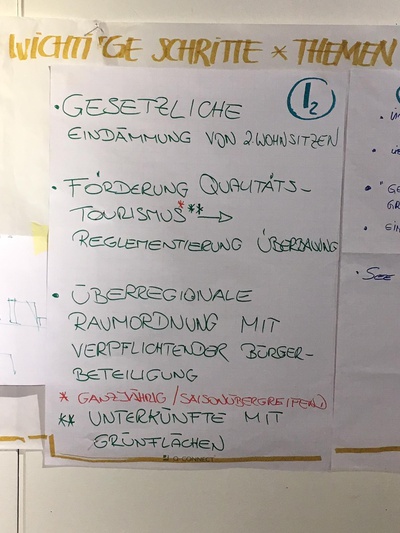 WICHTIGE SCHRITTE * THEMEN
I2
• GESETZLICHE
EINDÄMMUNG VON 2.WOHNSITZEN
• FÖRDERUNG QUALITÄTS-
TOURISMUS* ** →
REGLEMENTIERUNG ÜBERBAUUNG
• ÜBERREGIONALE
RAUMORDNUNG MIT
VERPFLICHTENDER BÜRGER-
BETEILIGUNG
* GANZJÄHRIG / SAISONÜBERGREIFEND
** UNTERKÜNFTE MIT
GRÜNFLÄCHEN
Q-CONNECT
• SEE